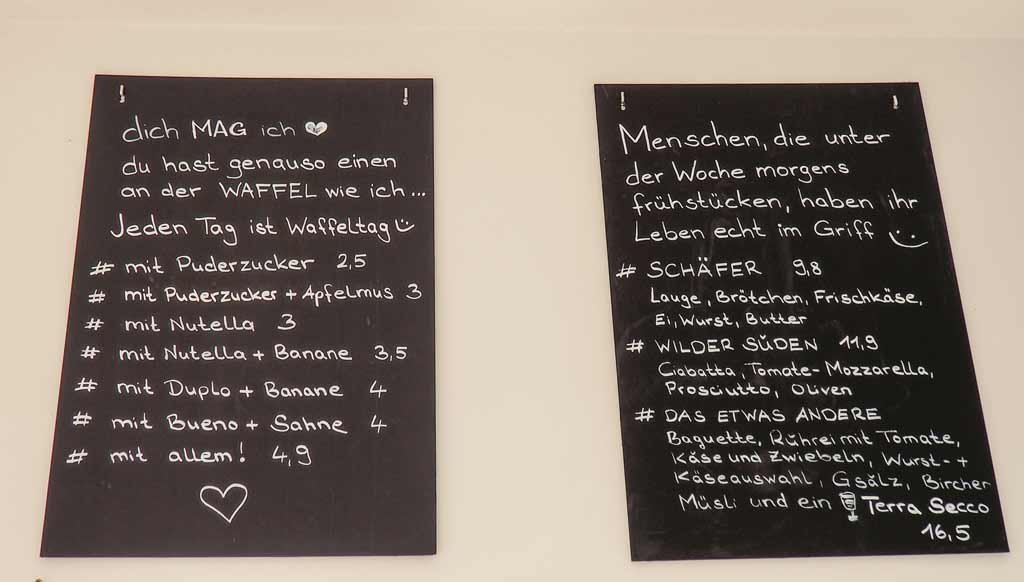 dich MAG ich
du hast genauso einen
an der WAFFEL wie ich...
Jeden Tag ist Waffeltag
# mit Puderzucker 2,5
# mit Puderzucker + Apfelmus 3
# mit Nutella 3
# mit Nutella + Banane 3,5
# mit Duplo + Banane 4
# mit Bueno + Sahne 4
# mit allem! 4,9
Menschen, die unter
der Woche morgens
frühstücken, haben ihr
Leben echt im Griff
# SCHÄFER 9,8
Lauge, Brötchen, Frischkäse,
Ei, Wurst, Butter
# WILDER SÜDEN 11,9
Ciabatta, Tomate-Mozzarella,
Prosciutto, Oliven
# DAS ETWAS ANDERE
Baguette, Rührei mit Tomate,
Käse und Zwiebeln, Wurst- +
Käseauswahl, Gsälz, Bircher
Müsli und ein Terra Secco
16,5